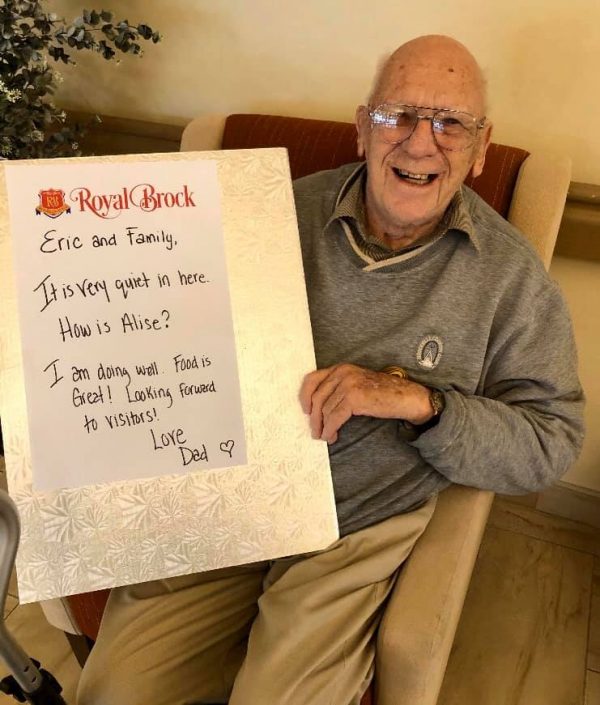 RM
Royal Brock
Eric and Family,
It is very quiet in here.
How is Alise?
I am doing well. Food is
Great! Looking forward
to visitors!
Love
Dad ♡